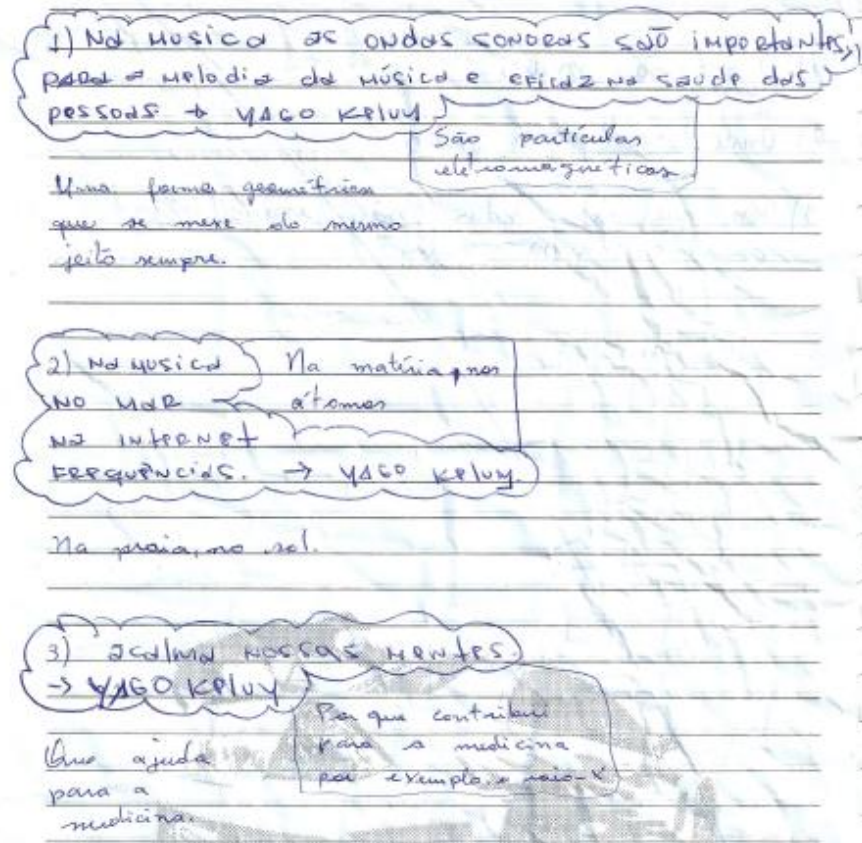 1) Na musica as ondas sonoras são importantes,
para a melodia da música e eficaz na saude das
pessoas → YAGO
São partículas
eletromagnéticas
Uma forma geométrica
que se mexe do mesmo
jeito sempre.
2) Na musica
no mar
na internet
frequências. → YAGO
Na matéria, nos
átomos
Na praia, no sol.
3) acalma nossas mentes.
→ YAGO
Por que contribui
para a medicina
por exemplo o raio-X
Que ajuda
para a
medicina.